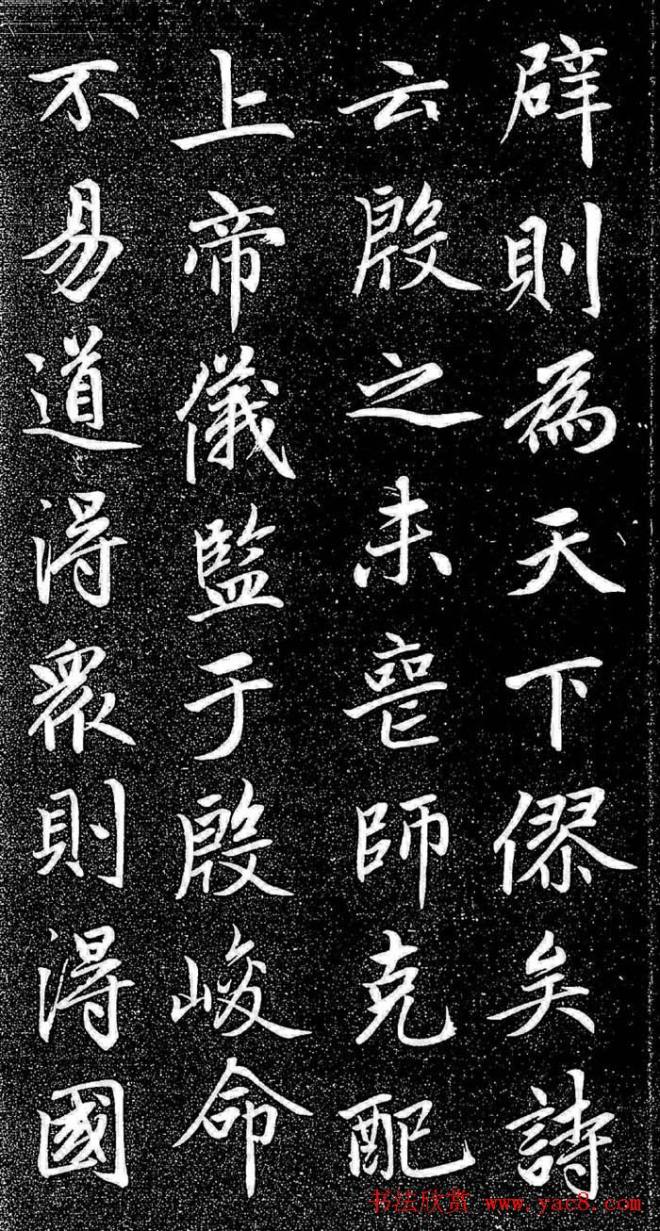 辟則為天下僇矣詩
云殷之未喪師克配
上帝儀監于殷峻命
不易道得衆則得國
书法欣赏 www.yac8.com